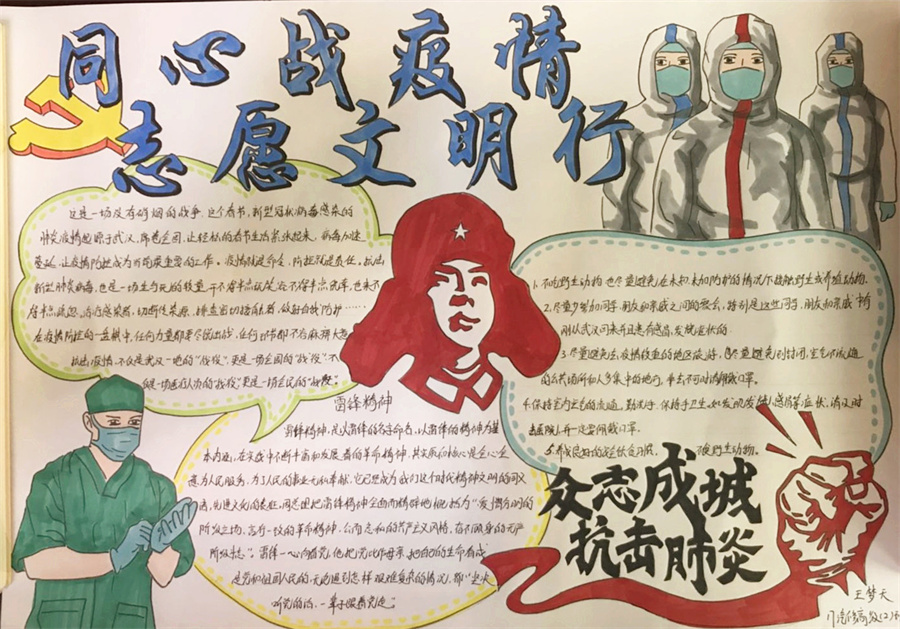 同心战疫情
志愿文明行
这是一场没有硝烟的战争,这个春节,新型冠状病毒感染的
肺炎疫情起源于武汉,席卷全国,让轻松的春节生活紧张起来,病毒加速
蔓延,让疫情防控成为当前最重要的工作。疫情就是命令,防控就是责任。抗击
新型肺炎病毒,也是一场生与死的较量
在疫情防控的一盘棋中,任何力量都要尽锐出战,任何环节都不容麻痹大意
抗击疫情,不仅是武汉一地的“战役”,更是一场全国的“战役”,不
仅是一场医疗人员的“战役”更是一场全民的“战役”
雷锋精神
雷锋精神,是以雷锋的名字命名,以雷锋的精神为基
本内涵,在实践中不断丰富和发展着的革命精神,其实质和核心是全心全
意为人民服务,为了人民的事业无私奉献。它已经成为我们这个时代精神文明的同义
语,先进文化的表征。周总理把雷锋精神全面而精辟地概括为“爱憎分明的
阶级立场,言行一致的革命精神,公而忘私的共产主义风格,奋不顾身的无产
阶级斗志”。雷锋一心向着党,他把党比作母亲,把自己的生命看成
是党和祖国人民的,无论遇到怎样艰难复杂的情况,都“坚决
听党的话,一辈子跟着党走”
1.不吃野生动物,也尽量避免在未知未加防护的情况下接触野生或养殖动物。
2.尽量少参加同学,朋友和亲戚之间的聚会,特别是这些同学,朋友和亲戚
刚从武汉回来并且患有感冒,发烧症状的
3.尽量避免去疫情较重的地区旅游,尽量避免到封闭,空气不流通
的公共场所和人多集中的地方,
4.保持室内空气的流通,勤洗手,保持手卫生,如发现发烧,感冒等症状,请及时
去医院,并一定要佩戴口罩。
5.养成良好的
野生动物。
众志成城
抗击肺炎
王梦天